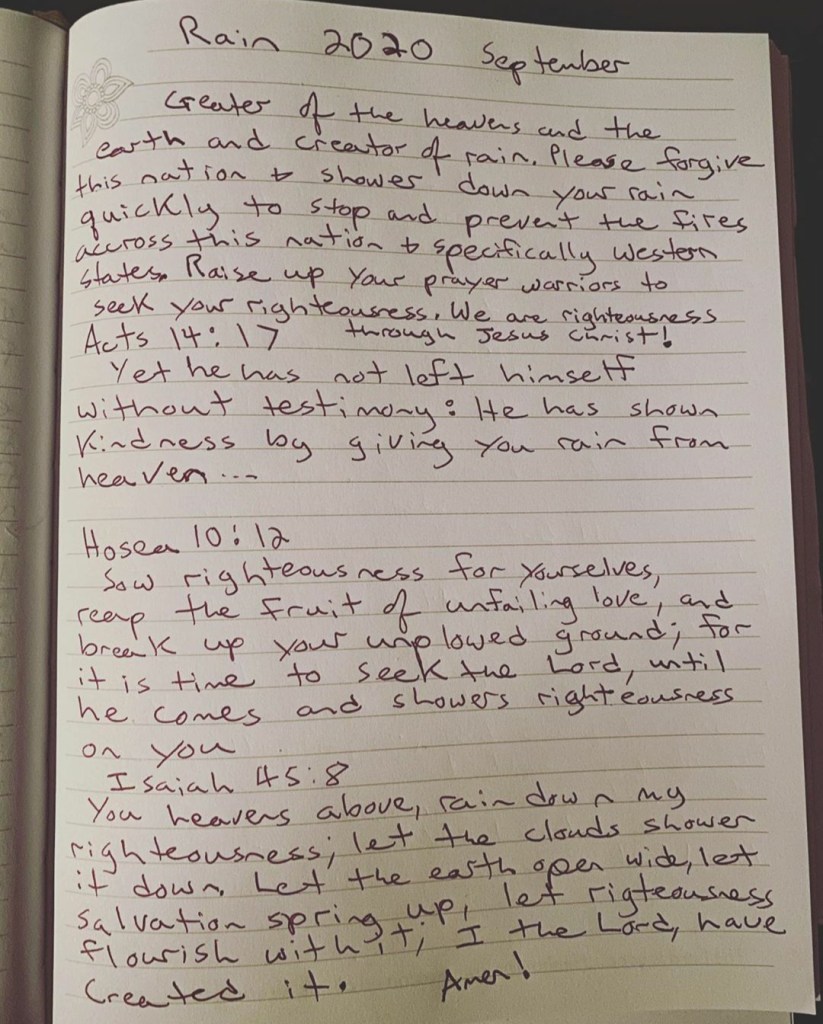 Rain 2020 September
Creater of the heavens and the
earth and creator of rain. Please forgive
this nation & shower down your rain
quickly to stop and prevent the fires
accross this nation & specifically western
states. Raise up your prayer warriors to
seek your righteousness. We are righteousness
Acts 14:17 through Jesus Christ!
Yet he has not left himself
without testimony: He has shown
Kindness by giving you rain from
heaven...
Hosea 10:12
Sow righteousness for yourselves,
reap the fruit of unfailing love, and
break up your unplowed ground; for
it is time to seek the Lord, until
he comes and showers righteousness
on you
Isaiah 45:8
You heavens above, rain down my
righteousness; let the clouds shower
it down. Let the earth open wide, let
salvation spring up, let rigteousness
flourish with it; I the Lord, have
created it. Amen!